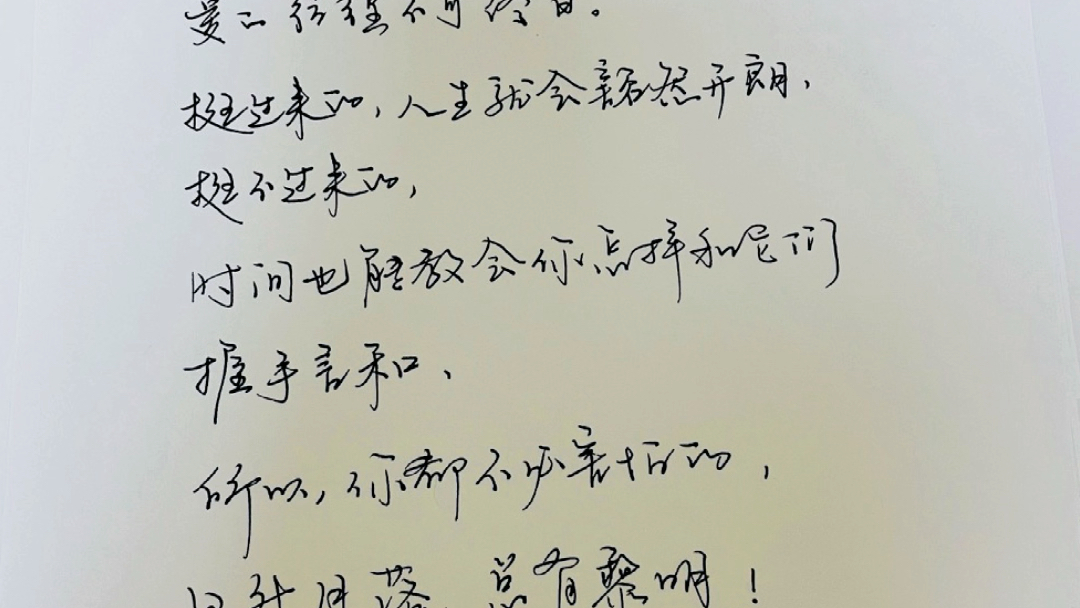 挺过来的，人生就会豁然开朗，
挺不过来的，
时间也能教会你怎样和它们
握手言和，
所以，你都不必害怕的，
日升月落，总有黎明！